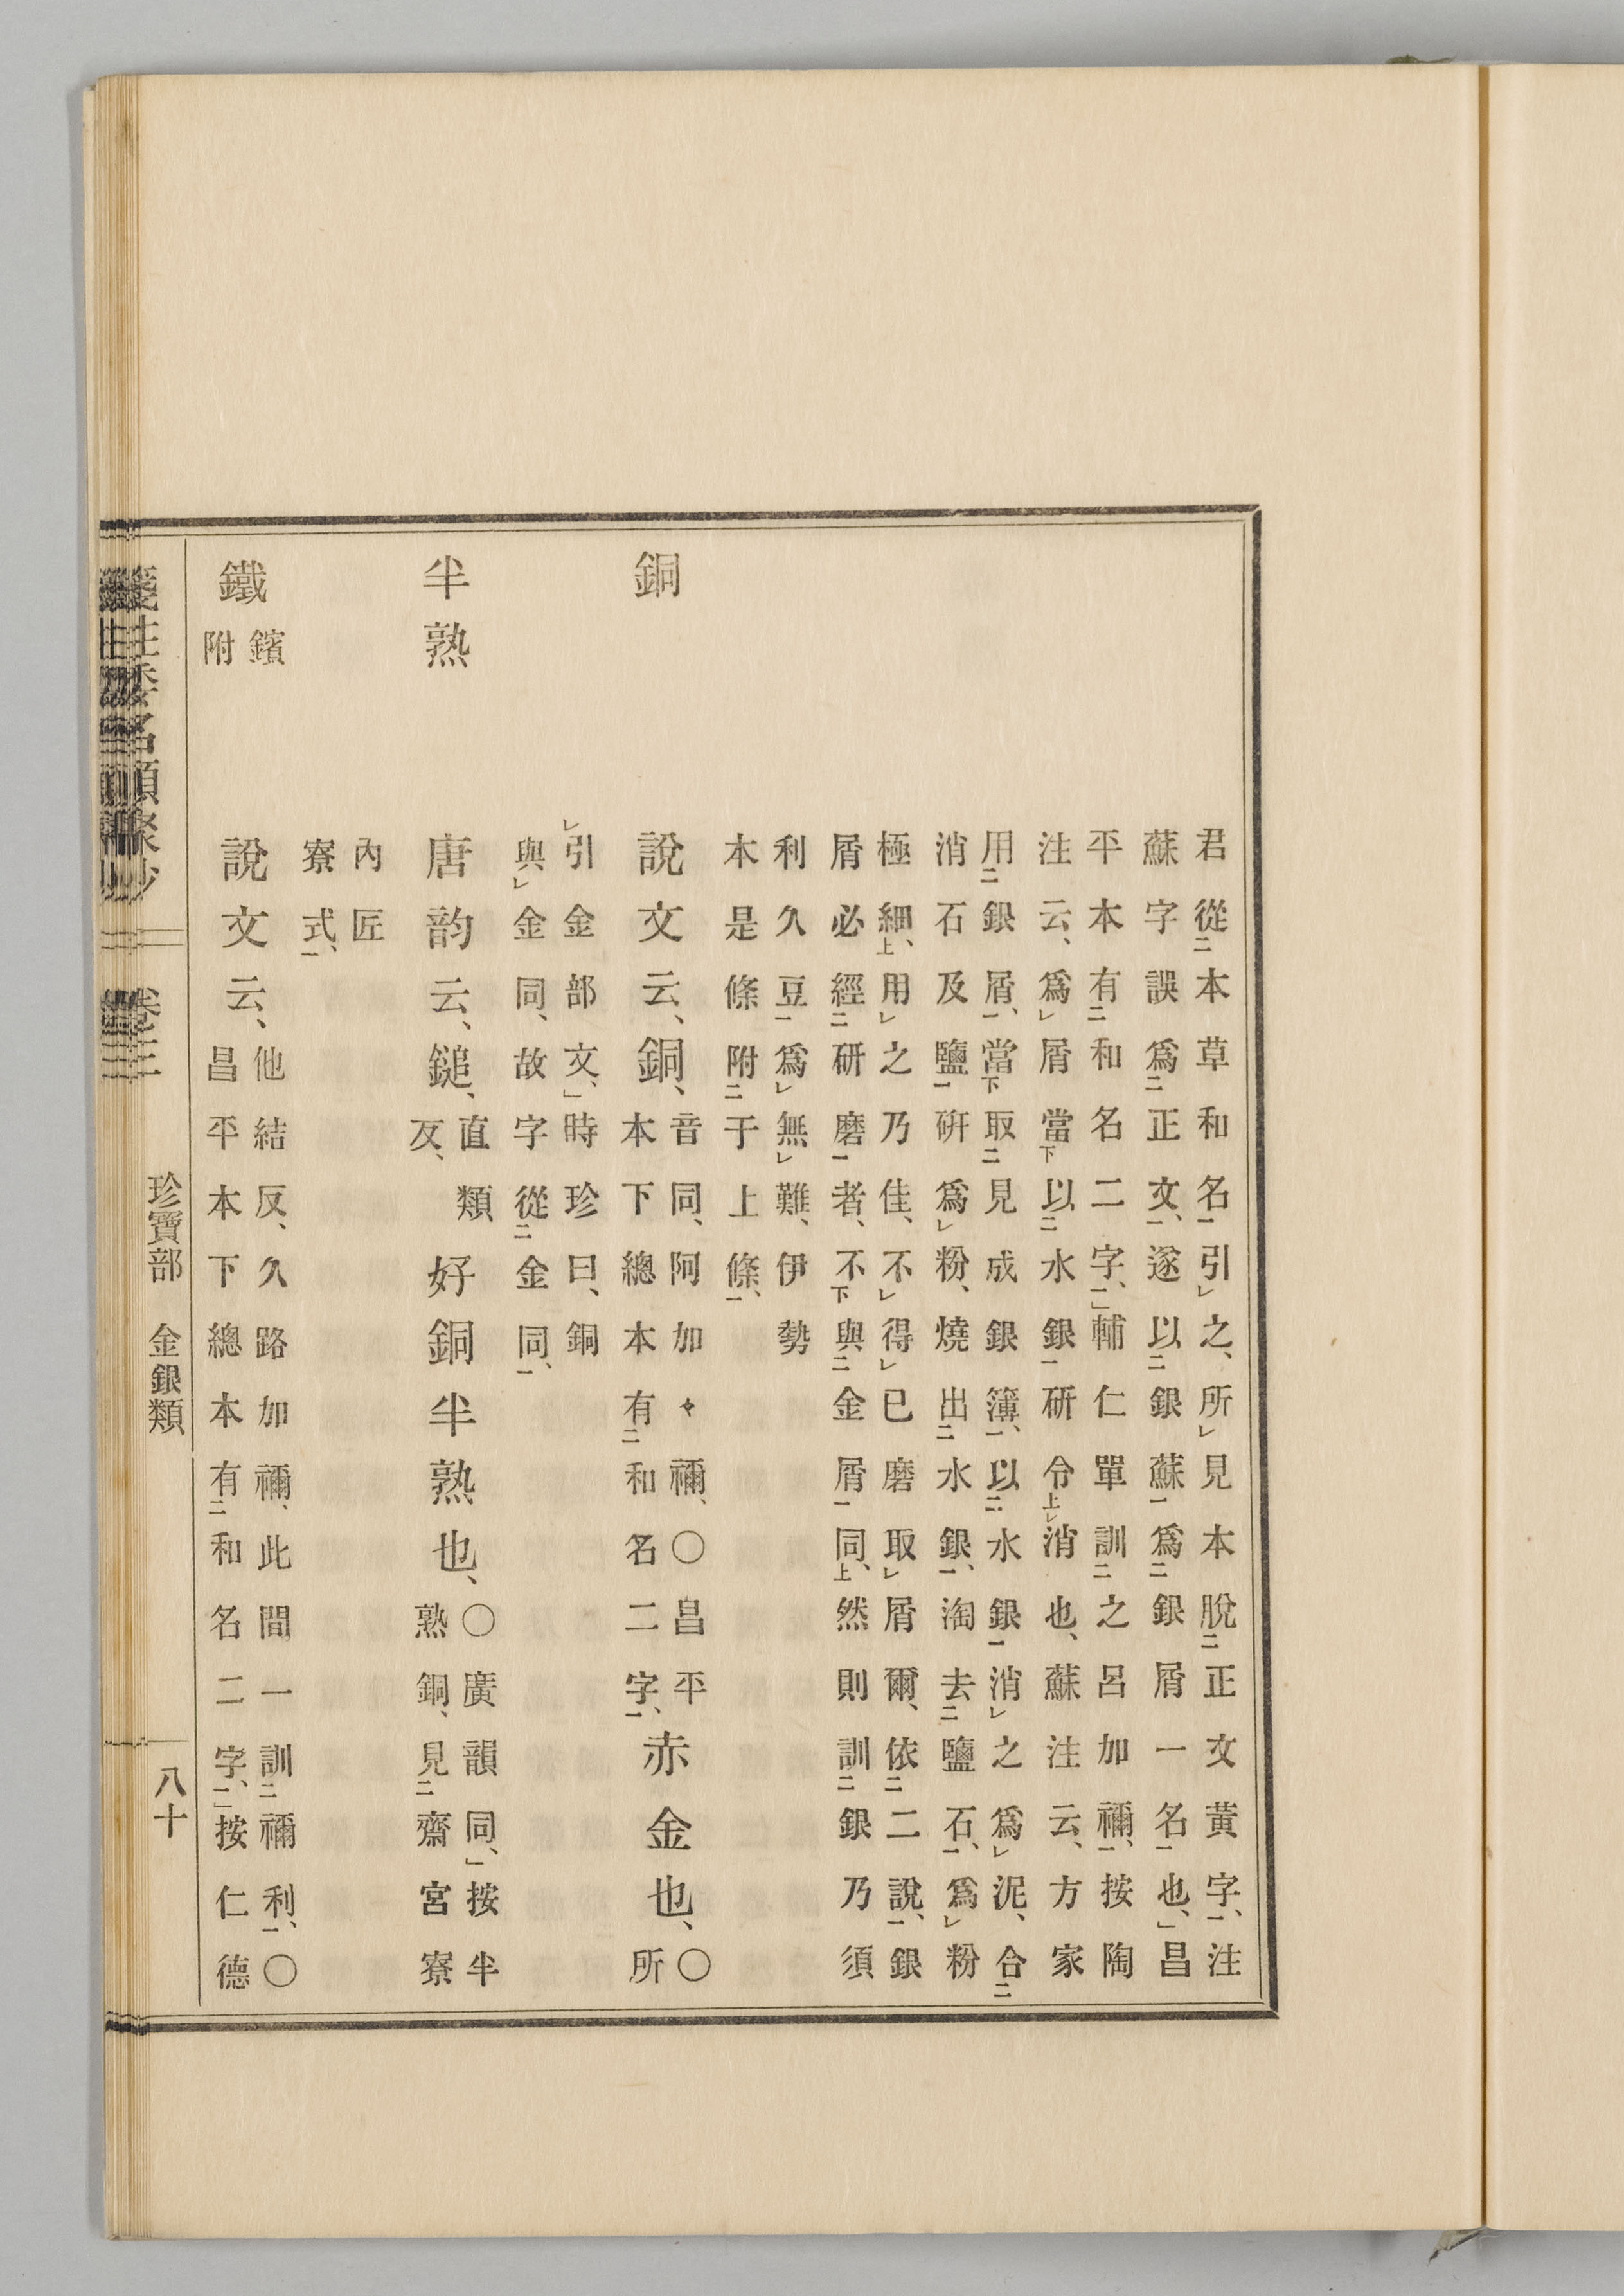 君從二本草和名一引レ之、所レ見本脫二正文黃字一、注
蘇字誤爲二正文一、遂以二銀蘇一爲二銀屑一名一也、」昌
平本有二和名二字一、」輔仁單訓二之呂加禰一、按陶
注云、爲レ屑當下以二水銀一研令上レ消也、蘇注云、方家
用二銀屑一、當下取二見成銀簿一、以二水銀一消レ之爲レ泥、合二
消石及鹽一硏爲レ粉、燒出二水銀一、淘去二鹽石一、爲レ粉
極細上、用レ之乃佳、不レ得レ已磨取レ屑爾、依二二說一、銀
屑必經二研磨一者、不下與二金屑一同上、然則訓二銀乃須
利久豆一爲レ無レ難、伊勢
本是條附二于上條一、
銅 說文云、銅、音同、阿加々禰、〇昌平
本下總本有二和名二字一、赤金也、〇所
レ引金部文、」時珍曰、銅
與レ金同、故字從二金同一、
半熟 唐韵云、鎚、直類
反、好銅半熟也、〇廣韻同、」按半
熟銅、見二齋宮寮
內匠
寮式一、
鐵 鑌附 說文云、他結反、久路加禰、此間一訓二禰利一、〇
昌平本下總本有二和名二字一、」按仁德
箋注倭名類聚抄 卷三 珍寶部 金銀類 八十